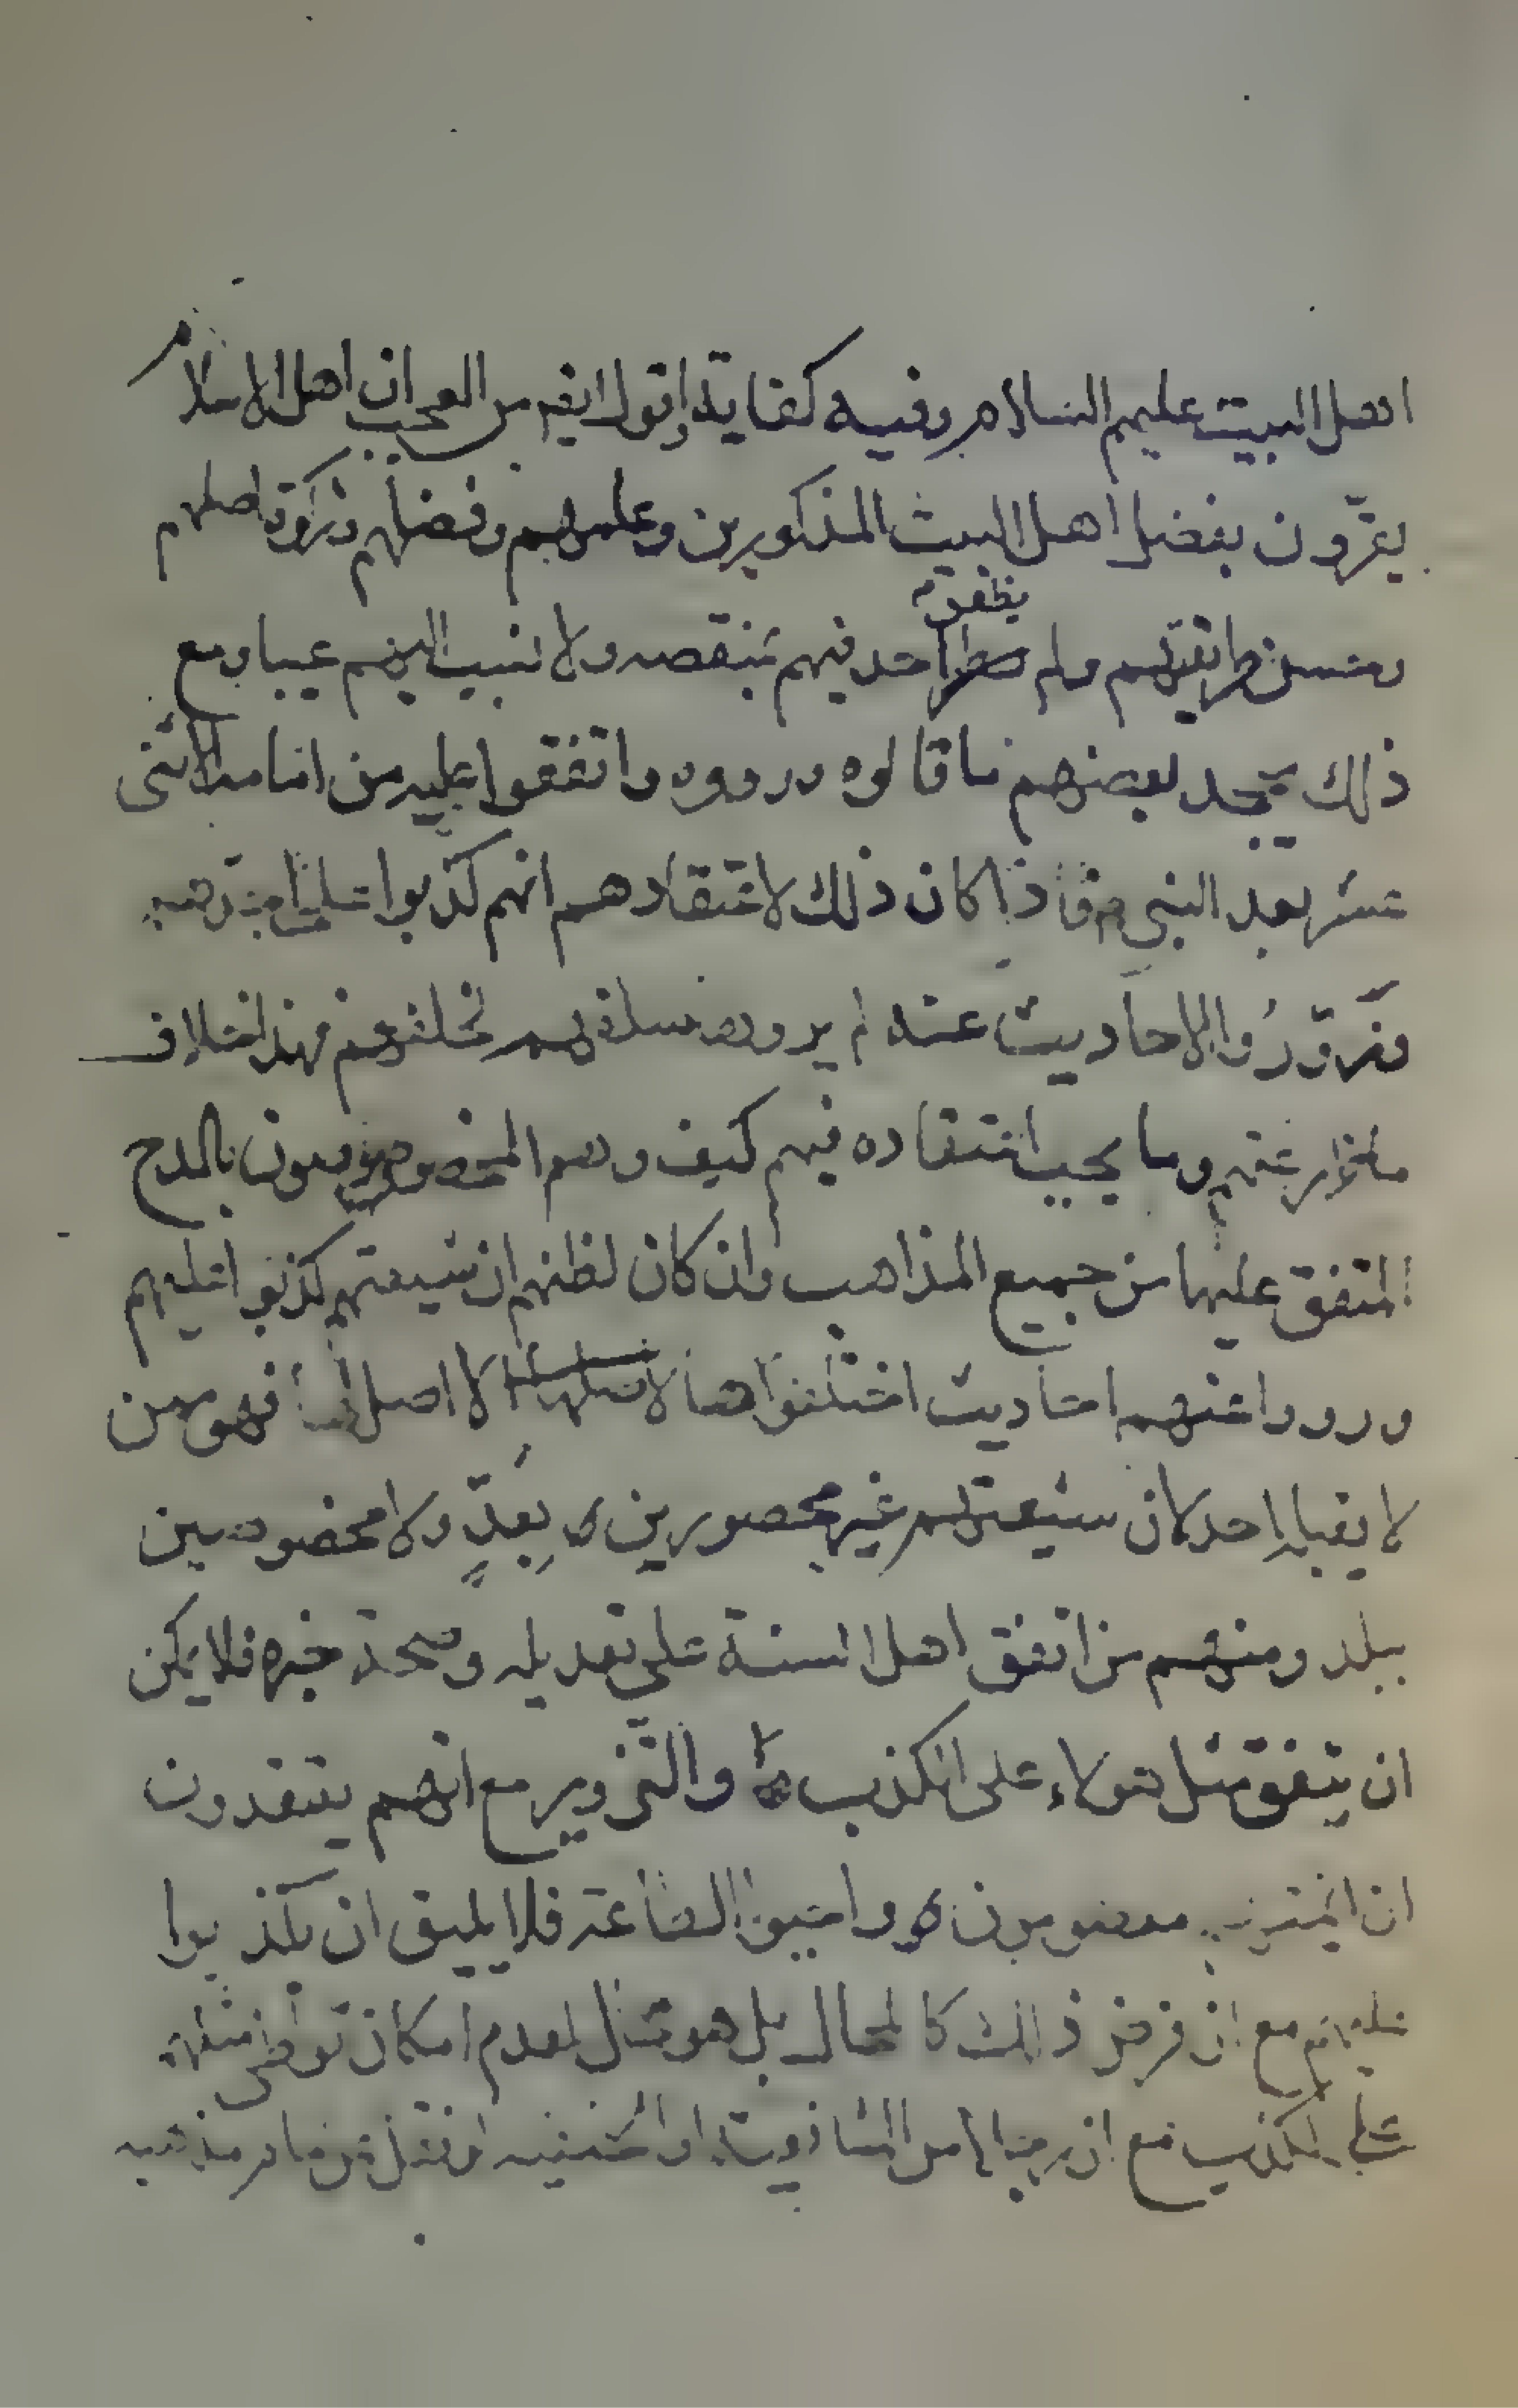 اهل البيت عليهم السلام وفيه كفاية واقول ايضم من العجب ان اهل الاسلام
يقرّون بفضل اهل البيت المذكورين وعلمهم وفضلهم وزكوة اصلهم
وحسن طرايقهم ولم يطعن احد فيهم بنقصه ولا نسب اليهم عيبا ومع
ذلك يجحد بعضهم ما قالوه ورووه واتفقوا عليه من امامة الاثنى
عشر بعد النبي ص فاذا كان ذلك لاعتقادهم انهم كذبوا
وزوّروا الاحاديث عنه لم يروه سلفهم لخلفهم فهذا خلاف
ما تواتر عنهم وما يجب اعتقاده فيهم كيف وهم المخصوصون بالمدح
المتفق عليها من جميع المذاهب وان كان لظنهم ان شيعتهم كذبوا عليهم
ورووا عنهم احاديث اختلفوها لا اصل لها فهو من
لا يقبله احد لان شيعتهم غير محصورين بعدٍّ ولا مخصوصين
ببلد ومنهم من اتفق اهل السنة على تعديله وصحة خبره فلا يمكن
ان يتفق مثل هولاء على الكذب والتزوير مع انهم يعتقدون
ان ائمتهم معصومون و واجبوا الطاعة فلا يليق ان يكذبوا
عليهم مع ان فرض ذلك كالمحال بل هو مثل لعدم امكان تواطى مثلهم
على الكذب مع ان رجلا من الشافعية او الحنفية لو نقل عن امام مذهبه